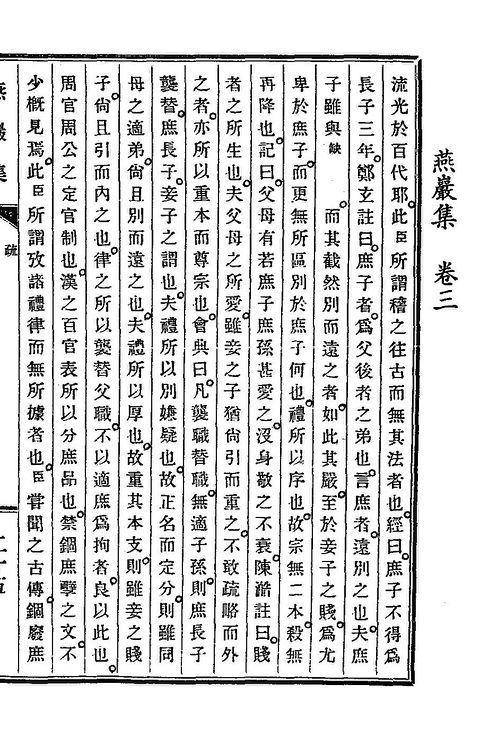 燕巖集 卷三
流光於百代耶。此臣所謂稽之往古而無其法者也。經曰。庶子不得爲
長子三年。鄭玄註曰。庶子者。爲父後者之弟也。言庶者。遠別之也。夫庶
子雖與 缺 而其截然別而遠之者。如此其嚴。至於妾子之賤。爲尤
卑於庶子。而更無所區別於庶子何也。禮所以序也。故宗無二本。殺無
再降也。記曰。父母有若庶子庶孫甚愛之。沒身敬之不衰。陳澔註曰。賤
者之所生也。夫父母之所愛。雖妾之子。猶尙引而重之。不敢疏略而外
之者。亦所以重本而尊宗也。會典曰。凡襲職替職。無適子孫。則庶長子
襲替。庶長子。妾子之謂也。夫禮所以別嫌疑也。故正名而定分。則雖同
母之適弟。尙且別而遠之也。夫禮所以厚也。故重其本支。則雖妾之賤
子。尙且引而內之也。律之所以襲替父職。不以適庶爲拘者。良以此也。
周官周公之定官制也。漢之百官表。所以分庶品也。禁錮庶孼之文。不
少槪見焉。此臣所謂攷諸禮律而無所據者也。臣嘗聞之古傳。錮廢庶
疏